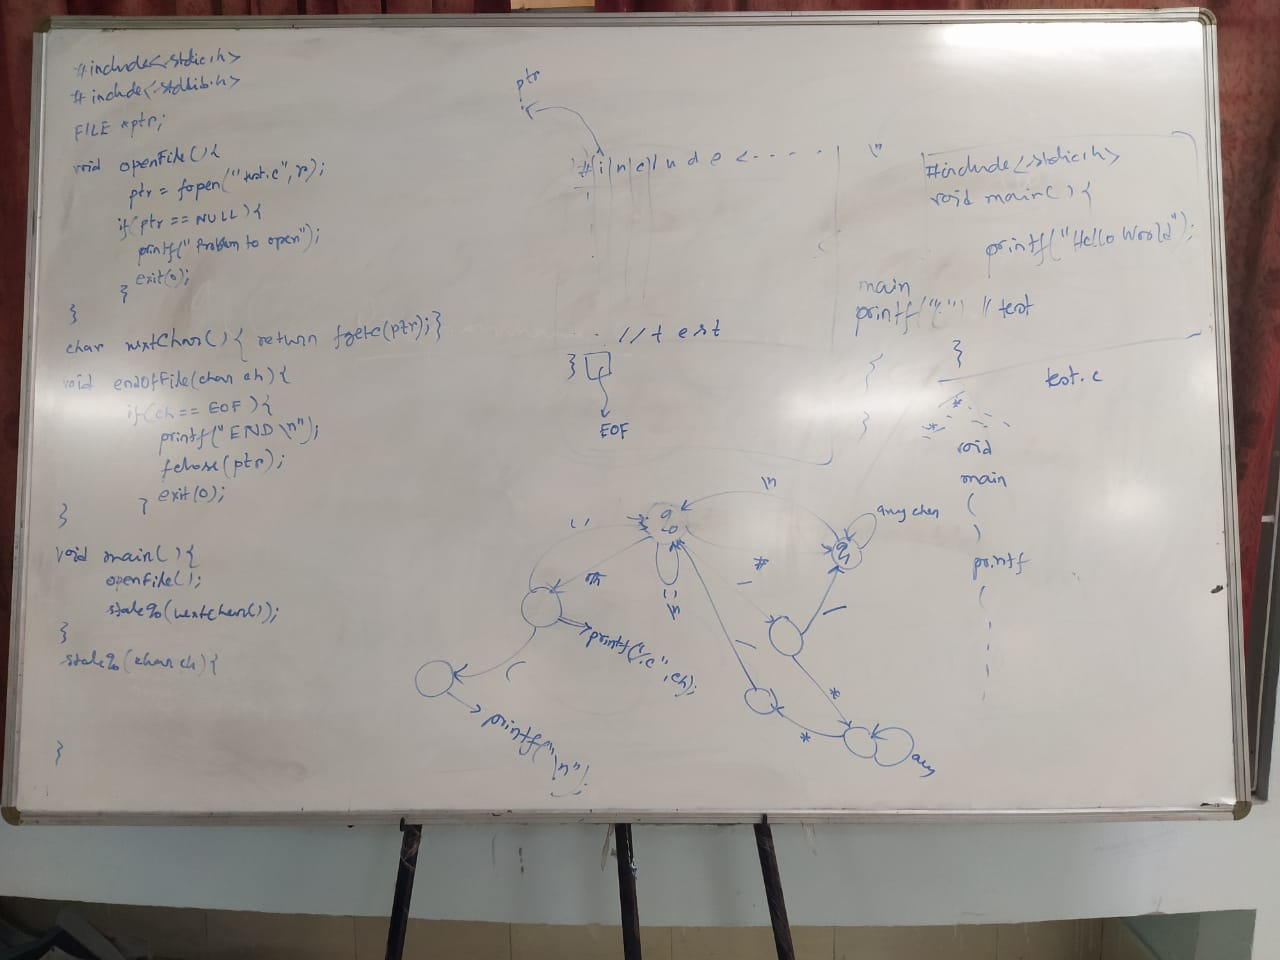 #include<stdio.h>
#include<stdlib.h>
FILE *ptr;
void openFile(){
ptr = fopen("test.c",r);
if(ptr == NULL){
printf("Problem to open");
exit(0);
}
}
char nextChar(){ return fgetc(ptr);}
void endOfFile(char ch){
if(ch == EOF){
printf("END \n");
fclose(ptr);
exit(0);
}
}
void main(){
openFile();
state0(nextChar());
}
state0(char ch){
}
ptr
#include<----- \n
. //test
}
EOF
#include<stdio.h>
void main(){
printf("Hello World");
main
printf("(") //test
}
}
}
test.c
*
*
void
main
(
)
printf
(
\n
q0
#
q1
any char
/
/
*
*
/
any
(
printf("%c",ch);
printf("\n");